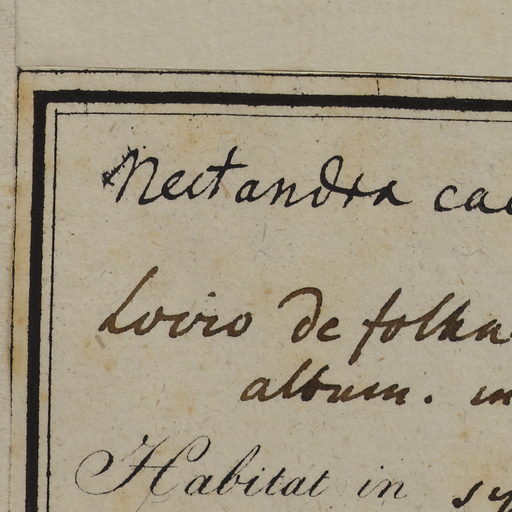 Nectandra cae
Lovro de folha
album. in
Habitat in sy